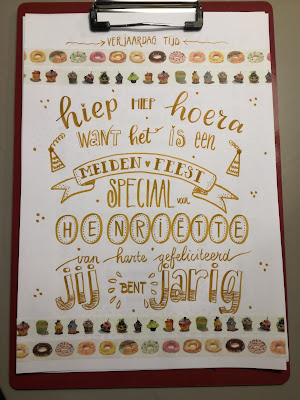 VERJAARDAG TIJD
hiep HIEP hoera
WANT het IS een
MEIDEN FEEST
SPECIAAL voor
HENRIËTTE
van harte gefeliciteerd
jij BENT jarig